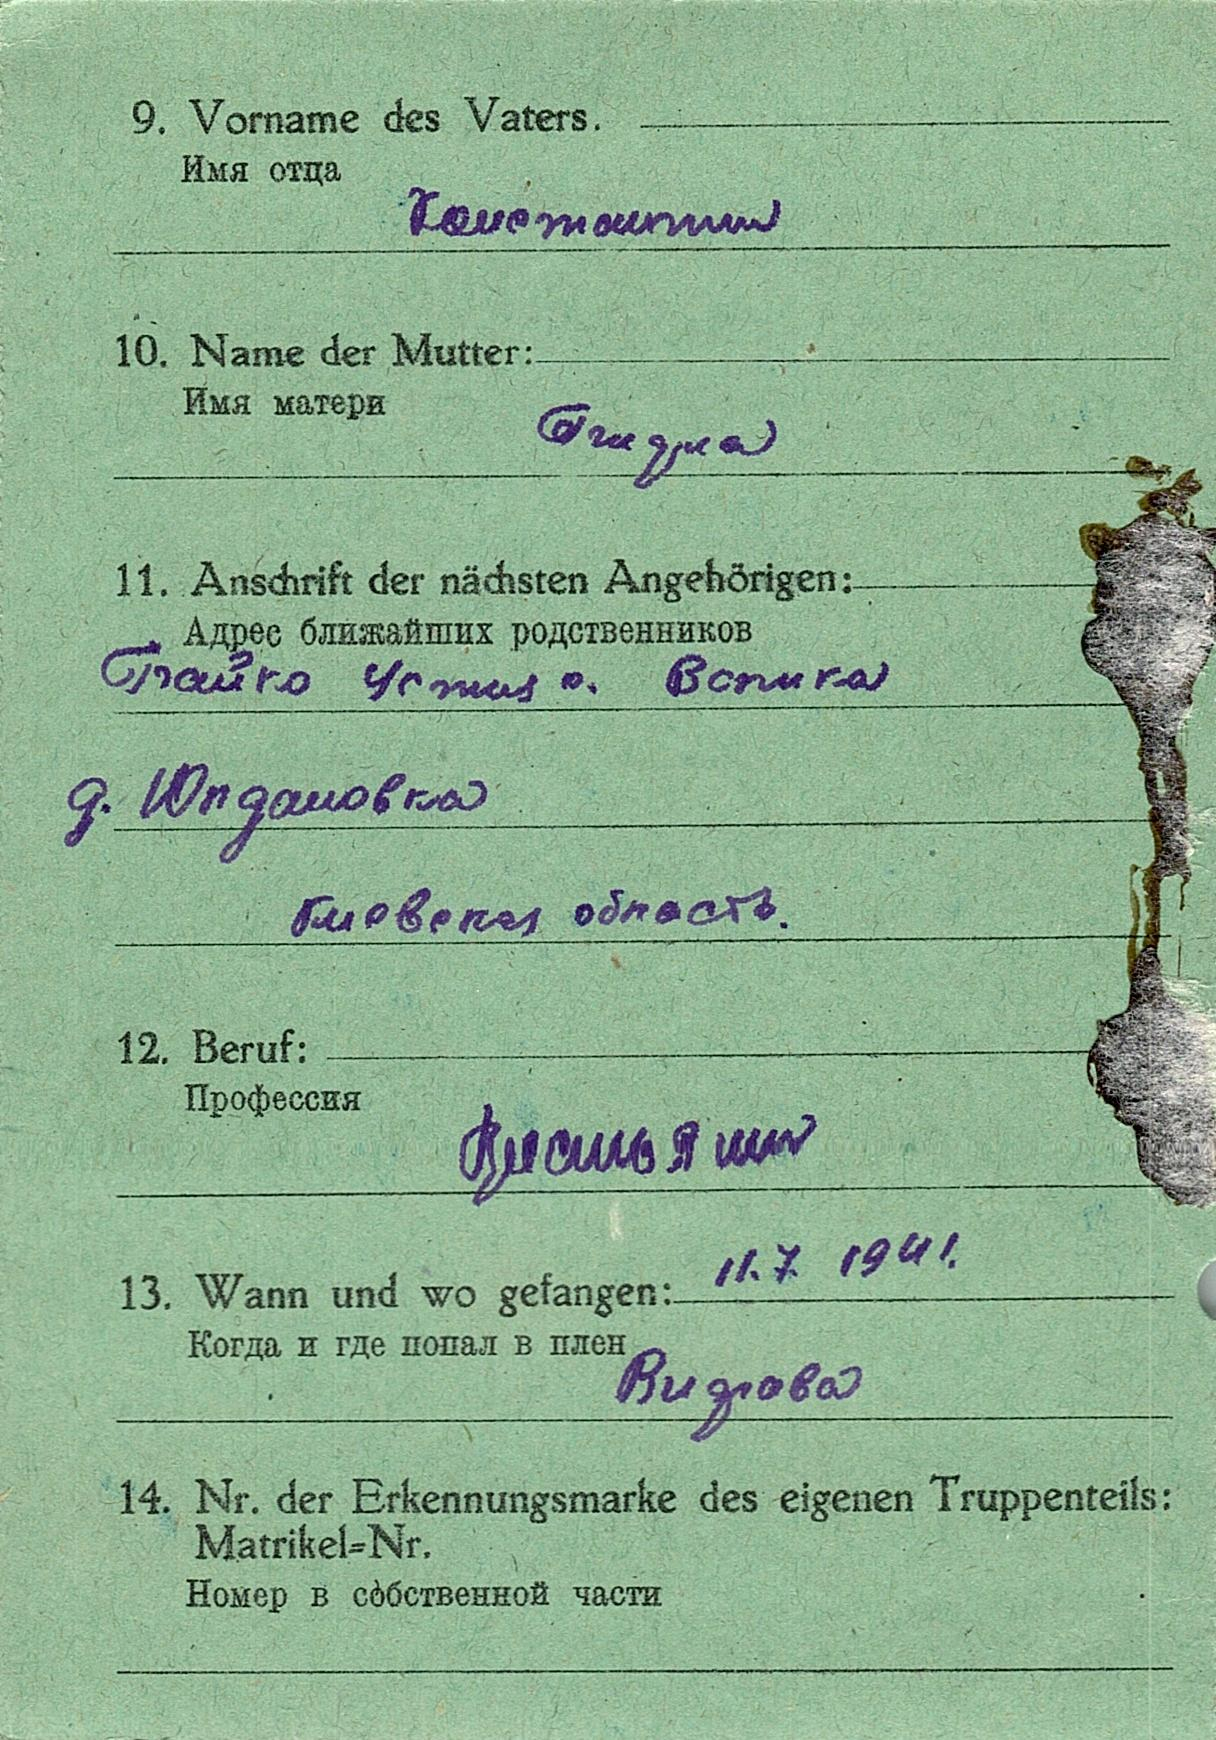 9. Vorname des Vaters.
Имя отца
Константин
10. Name der Mutter:
Имя матери
11. Anschrift der nächsten Angehörigen:
Адрес ближайших родственников
д. Юпдановка
Киевская область.
12. Beruf:
Профессия
Крестьянин
13. Wann und wo gefangen: 11.7. 1941.
Когда и где попал в плен
14. Nr. der Erkennungsmarke des eigenen Truppenteils:
Matrikel=Nr.
Номер в собственной части